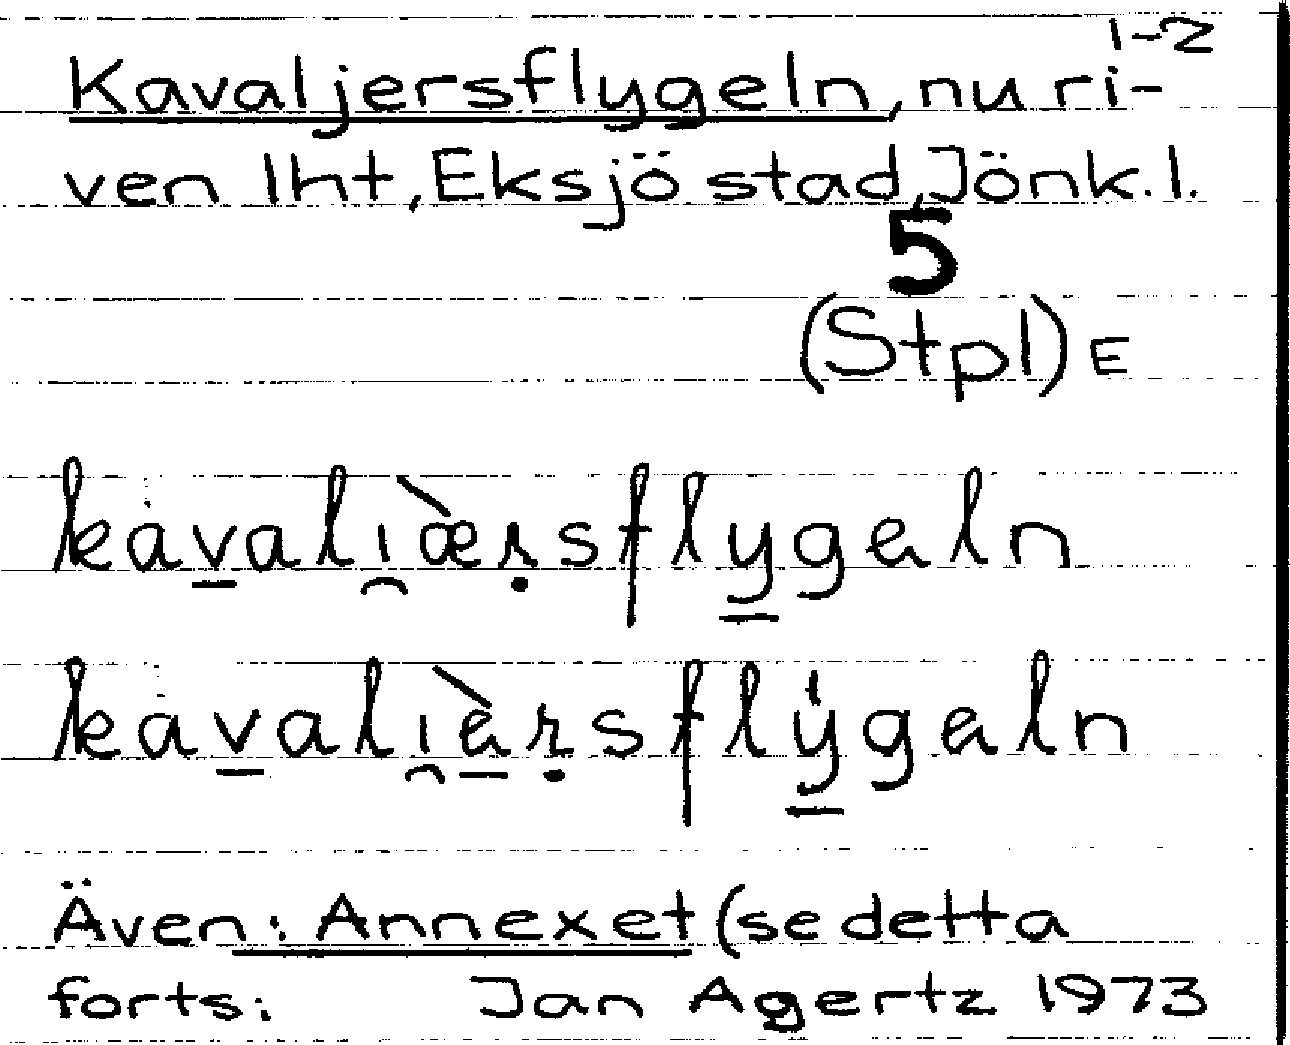 1-2
Kavaljersflygeln, nu ri-
ven lht, Eksjö stad, Jönk. l.
5
(Stpl) E
kavaliæ̀rsflygeln
kavaliàrsflýgaln
Även: Annexet (se detta
forts: Jan Agertz 1973